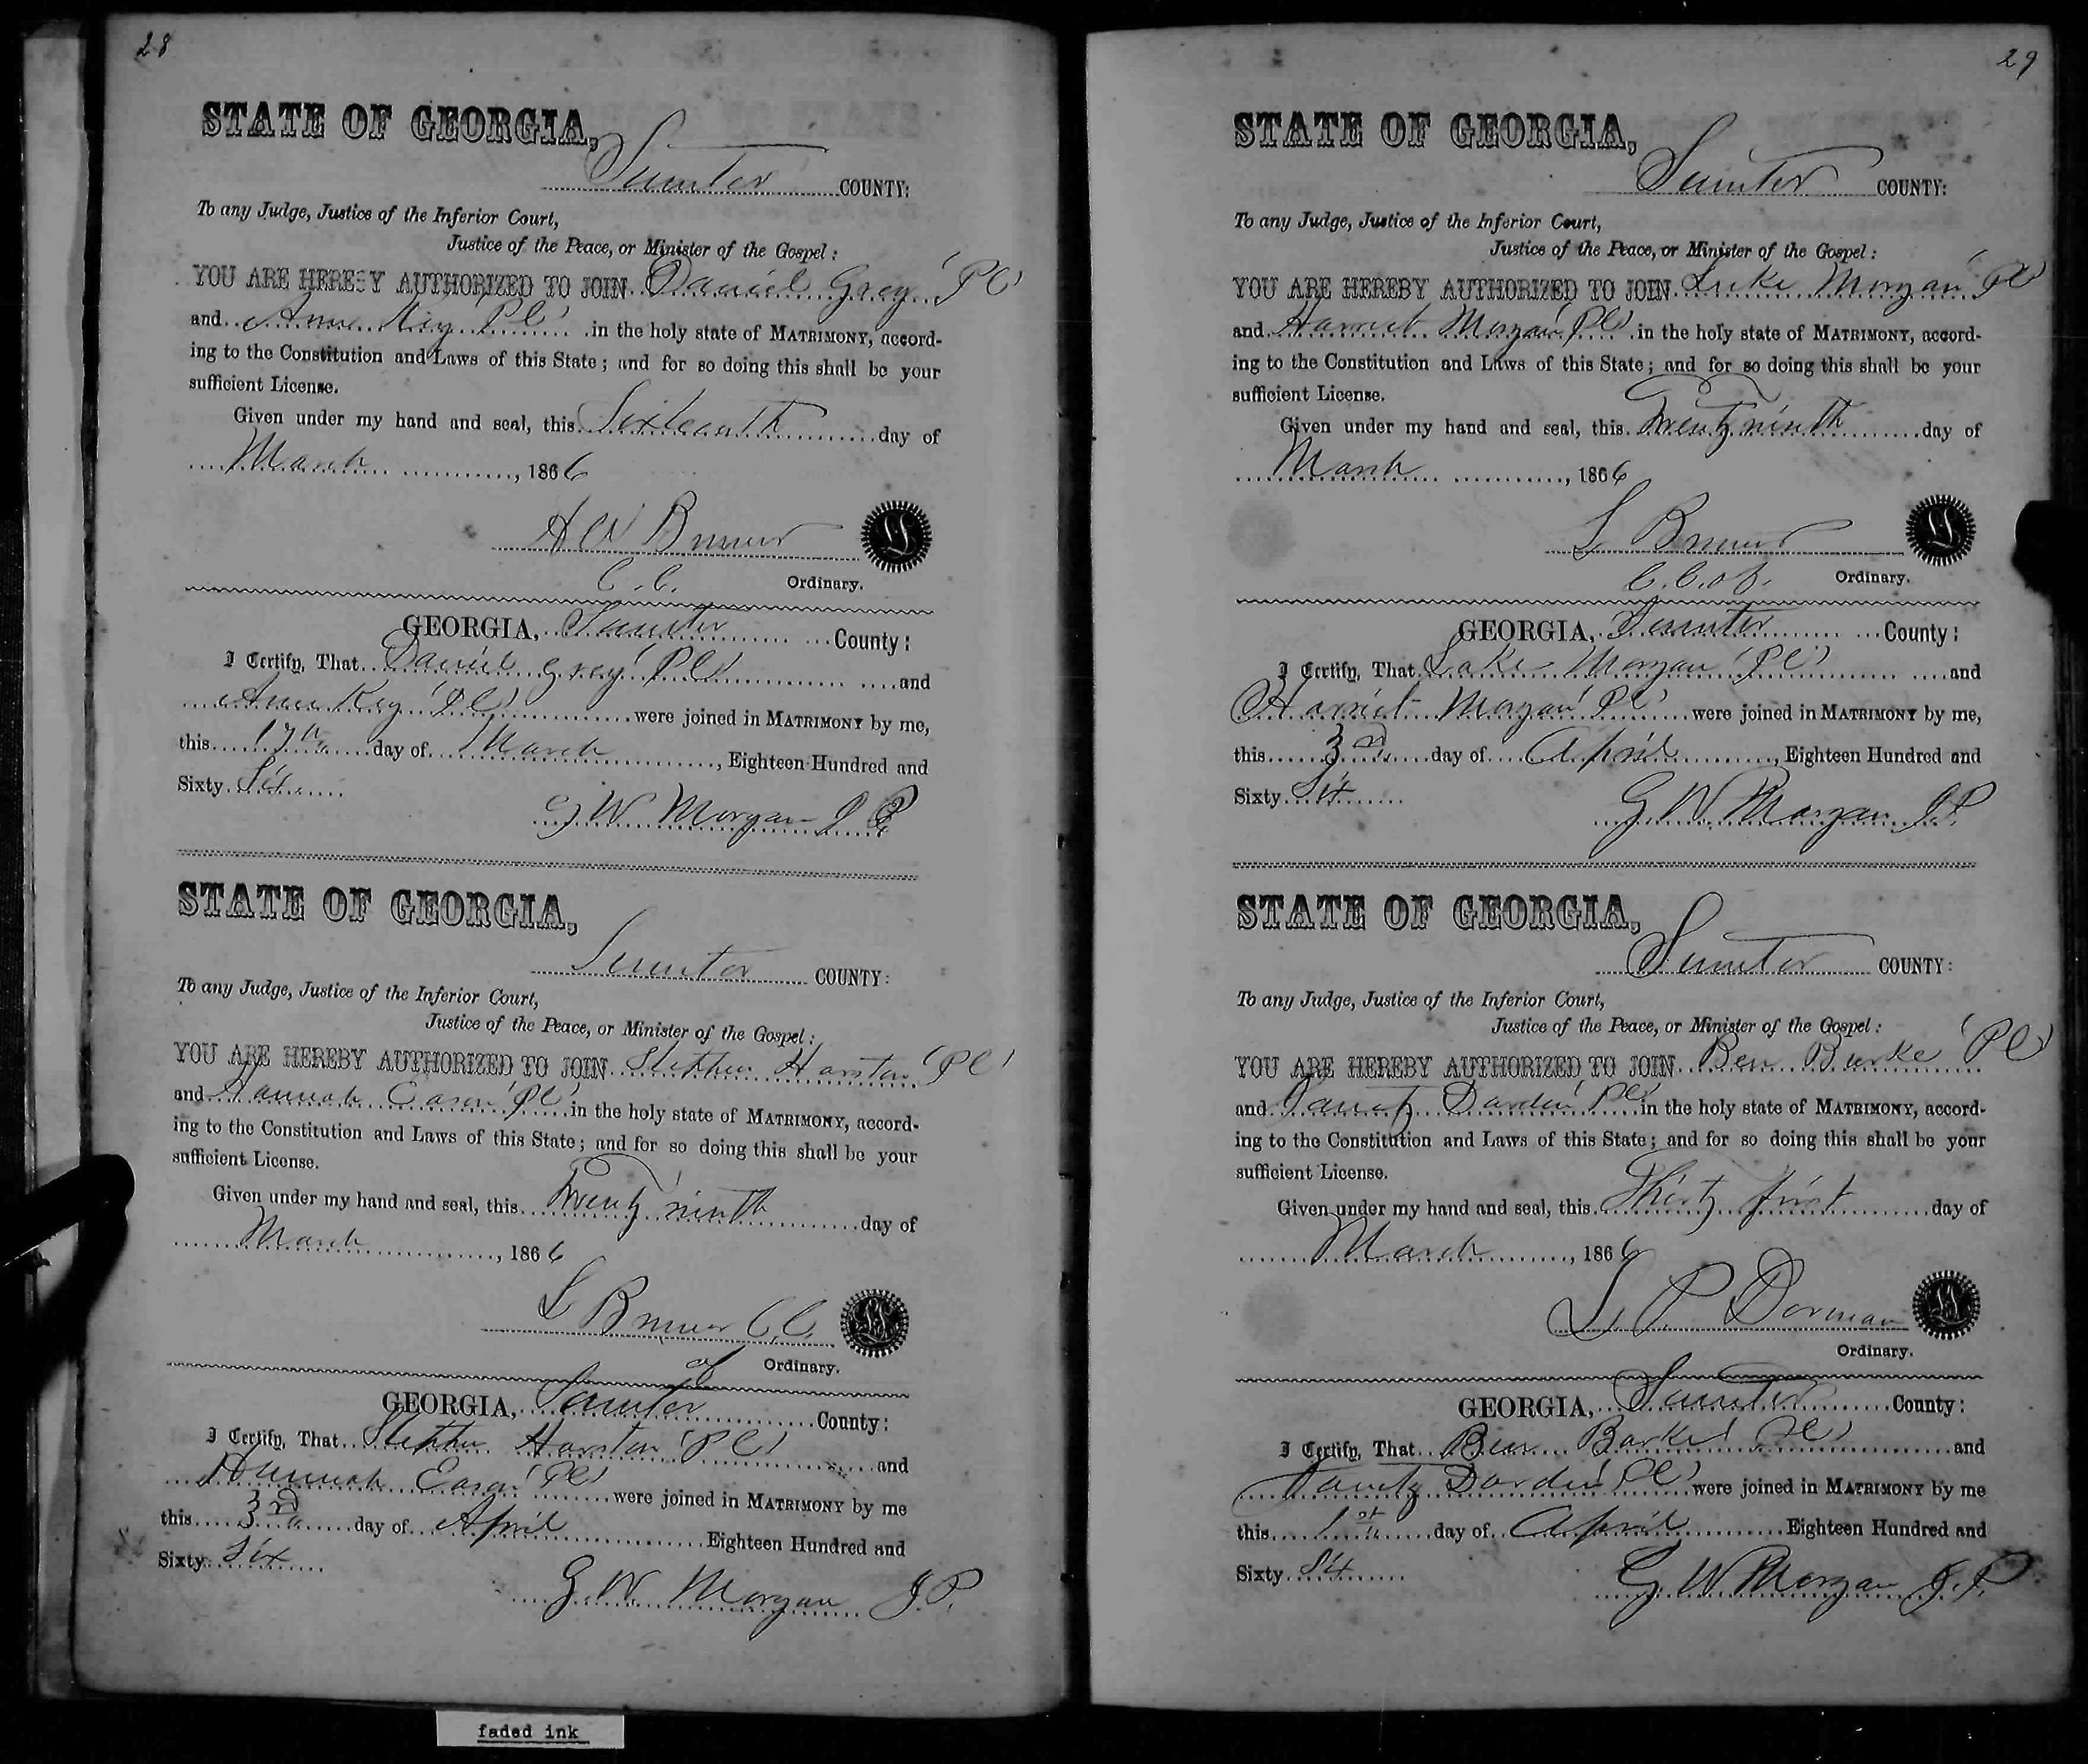 28
STATE OF GEORGIA,
Sumter COUNTY:
To any Judge, Justice of the Inferior Court,
Justice of the Peace, or Minister of the Gospel:
YOU ARE HEREBY AUTHORIZED TO JOIN Daniel Grey (PC)
and Anne Key (PC) in the holy state of MATRIMONY, accord-
ing to the Constitution and Laws of this State; and for so doing this shall be your
sufficient License.
Given under my hand and seal, this Sixteenth day of
March, 1866
Ordinary.
C.C.
GEORGIA, Sumter County:
I Certify, That Daniel Grey (PC) and
Anne Key (PC) were joined in MATRIMONY by me,
this 17th day of March, Eighteen Hundred and
Sixty Six
G W Morgan J P
STATE OF GEORGIA,
Sumter COUNTY:
To any Judge, Justice of the Inferior Court,
Justice of the Peace, or Minister of the Gospel:
YOU ARE HEREBY AUTHORIZED TO JOIN Stephen Harston (PC)
and Hannah Eason (PC) in the holy state of MATRIMONY, accord-
ing to the Constitution and Laws of this State; and for so doing this shall be your
sufficient License.
Given under my hand and seal, this Twenty ninth day of
March, 1866
C.C.
Ordinary.
GEORGIA, Sumter County:
I Certify, That Stephen Harston (PC) and
Hannah Eason (PC) were joined in MATRIMONY by me
this 3rd day of April Eighteen Hundred and
Sixty Six
G W Morgan J P.
faded ink
29
STATE OF GEORGIA,
Sumter COUNTY:
To any Judge, Justice of the Inferior Court,
Justice of the Peace, or Minister of the Gospel:
YOU ARE HEREBY AUTHORIZED TO JOIN Luke Morgan (PC)
and Harriet Morgan (PC) in the holy state of MATRIMONY, accord-
ing to the Constitution and Laws of this State; and for so doing this shall be your
sufficient License.
Given under my hand and seal, this Twenty ninth day of
March, 1866
Ordinary.
GEORGIA, Sumter County:
I Certify, That Luke Morgan (PC) and
Harriet Morgan (PC) were joined in MATRIMONY by me,
this 3rd day of April, Eighteen Hundred and
Sixty Six
G W Morgan J.P.
STATE OF GEORGIA,
Sumter COUNTY:
To any Judge, Justice of the Inferior Court,
Justice of the Peace, or Minister of the Gospel:
YOU ARE HEREBY AUTHORIZED TO JOIN Ben Burke (PC)
and Darden (PC) in the holy state of MATRIMONY, accord-
ing to the Constitution and Laws of this State; and for so doing this shall be your
sufficient License.
Given under my hand and seal, this Thirty first day of
March, 1866
L. P. Dorman
Ordinary.
GEORGIA, Sumter County:
I Certify, That Ben Burke (PC) and
Darden (PC) were joined in MATRIMONY by me
this 1st day of April Eighteen Hundred and
Sixty Six
G W Morgan J.P.